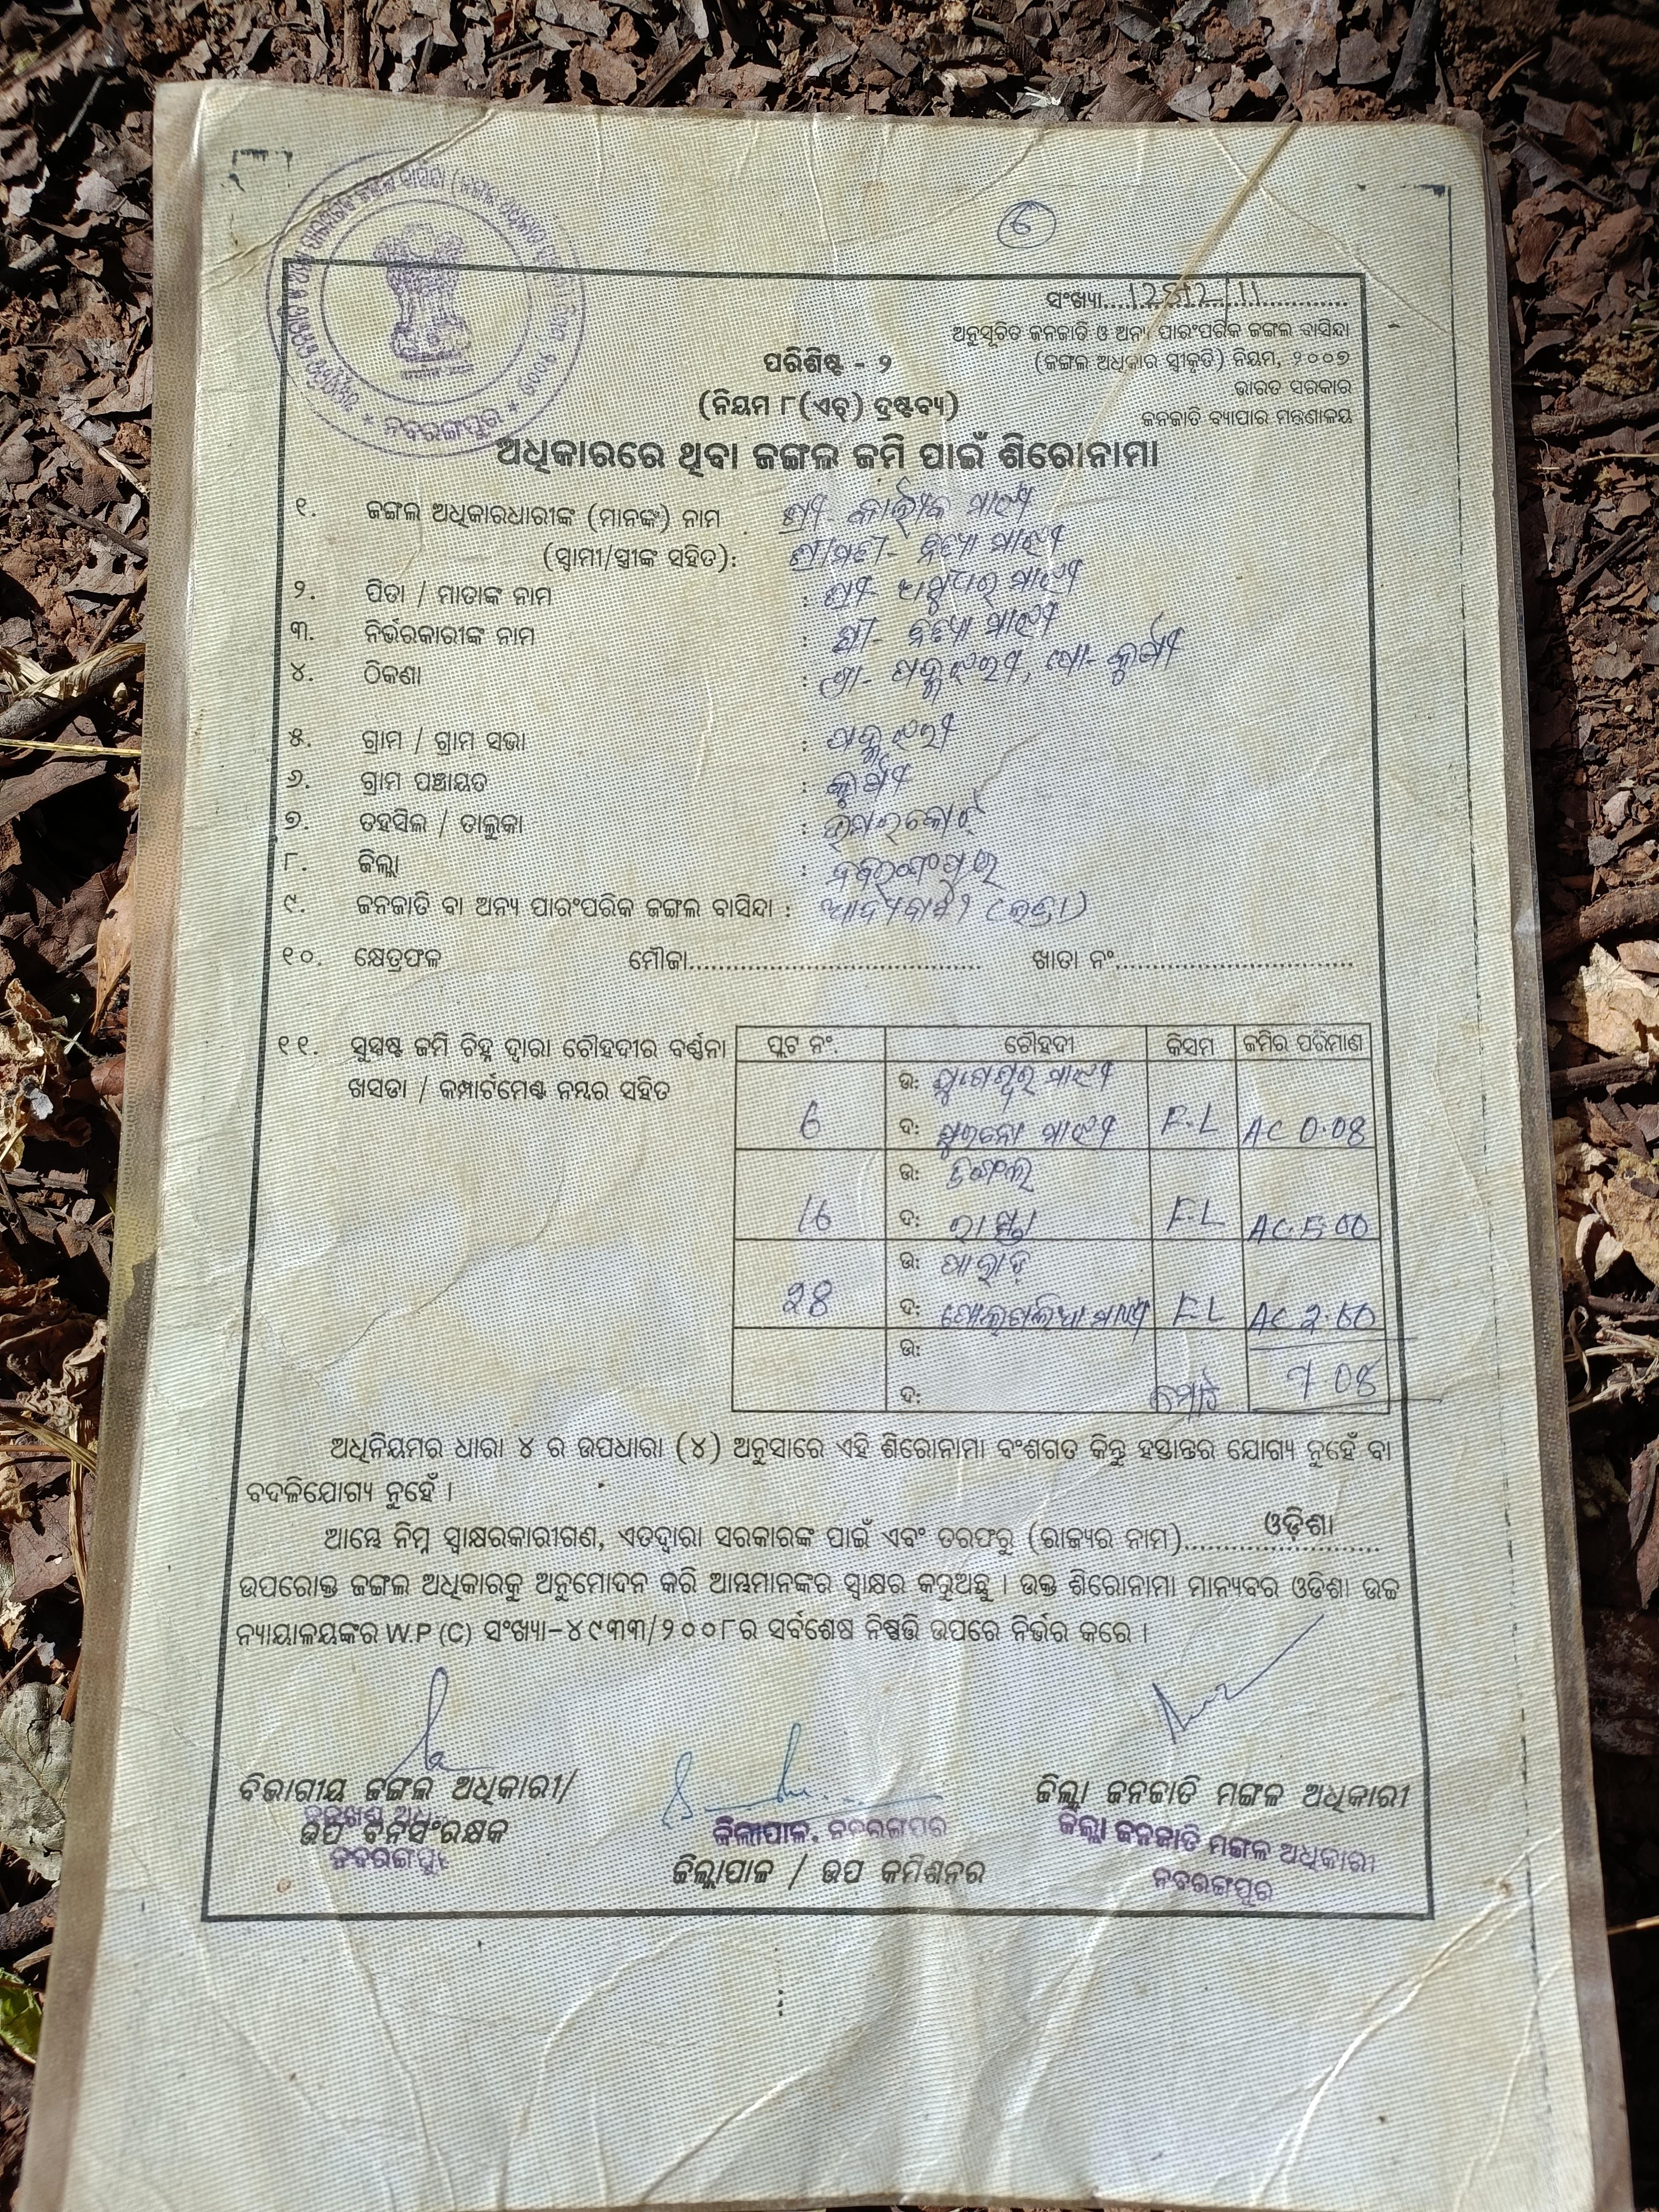 6
ସଂଖ୍ୟା..............................
ଅନୁସୂଚିତ ଜନଜାତି ଓ ଅନ୍ୟ ପାରଂପରିକ ଜଙ୍ଗଲ ବାସିନ୍ଦା
(ଜଙ୍ଗଲ ଅଧିକାର ସ୍ୱୀକୃତି) ନିୟମ, ୨୦୦୭
ଭାରତ ସରକାର
ଜନଜାତି ବ୍ୟାପାର ମନ୍ତ୍ରଣାଳୟ
ପରିଶିଷ୍ଟ - ୨
(ନିୟମ ୮(ଏଚ୍) ଦ୍ରଷ୍ଟବ୍ୟ)
ନବରଙ୍ଗପୁର
ଅଧିକାରରେ ଥିବା ଜଙ୍ଗଲ ଜମି ପାଇଁ ଶିରୋନାମା
୧. ଜଙ୍ଗଲ ଅଧିକାରଧାରୀଙ୍କ (ମାନଙ୍କ) ନାମ ଶ୍ରୀ- କାର୍ତ୍ତୀକ ମାଝୀ
(ସ୍ୱାମୀ/ସ୍ତ୍ରୀଙ୍କ ସହିତ): ଶ୍ରୀମତୀ- ମାଝୀ
୨. ପିତା / ମାତାଙ୍କ ନାମ : ଶ୍ରୀ- ମାଝୀ
୩. ନିର୍ଭରକାରୀଙ୍କ ନାମ : ଶ୍ରୀ- ମାଝୀ
୪. ଠିକଣା : ଗ୍ରା- , ପୋ-
୫. ଗ୍ରାମ / ଗ୍ରାମ ସଭା :
୬. ଗ୍ରାମ ପଞ୍ଚାୟତ :
୭. ତହସିଲ / ତାଲୁକା : ଉମରକୋଟ୍
୮. ଜିଲ୍ଲା : ନବରଙ୍ଗପୁର
୯. ଜନଜାତି ବା ଅନ୍ୟ ପାରଂପରିକ ଜଙ୍ଗଲ ବାସିନ୍ଦା : ଆଦିବାସୀ
୧୦. କ୍ଷେତ୍ରଫଳ ମୌଜା....................................... ଖାତା ନଂ................................
୧୧. ସୁସ୍ପଷ୍ଟ ଜମି ଚିହ୍ନ ଦ୍ୱାରା ଚୌହଦୀର ବର୍ଣ୍ଣନା
ଖସଡା / କମ୍ପାର୍ଟମେଣ୍ଟ ନମ୍ବର ସହିତ
ପ୍ଲଟ ନଂ. ଚୌହଦୀ କିସମ ଜମିର ପରିମାଣ
ଉ: ମାଝୀ
6 ଦ: ମାଝୀ F.L AC 0.08
ଉ: ଜଙ୍ଗଲ
16 ଦ: ରାସ୍ତା F.L AC.5.00
ଉ: ପାହାଡ଼
28 ଦ: ମାଝୀ F.L AC 2.00
ଉ:
ଦ: ମୋଟ 7.08
ଅଧିନିୟମର ଧାରା ୪ ର ଉପଧାରା (୪) ଅନୁସାରେ ଏହି ଶିରୋନାମା ବଂଶଗତ କିନ୍ତୁ ହସ୍ତାନ୍ତର ଯୋଗ୍ୟ ନୁହେଁ ବା
ବଦଳିଯୋଗ୍ୟ ନୁହେଁ ।
ଆମ୍ଭେ ନିମ୍ନ ସ୍ୱାକ୍ଷରକାରୀଗଣ, ଏତଦ୍ୱାରା ସରକାରଙ୍କ ପାଇଁ ଏବଂ ତରଫରୁ (ରାଜ୍ୟର ନାମ)......ଓଡ଼ିଶା......
ଉପରୋକ୍ତ ଜଙ୍ଗଲ ଅଧିକାରକୁ ଅନୁମୋଦନ କରି ଆମ୍ଭମାନଙ୍କର ସ୍ୱାକ୍ଷର କରୁଅଛୁ । ଉକ୍ତ ଶିରୋନାମା ମାନ୍ୟବର ଓଡିଶା ଉଚ୍ଚ
ନ୍ୟାୟାଳୟଙ୍କର W.P (C) ସଂଖ୍ୟା-୪୯୩୩/୨୦୦୮ର ସର୍ବଶେଷ ନିଷ୍ପତ୍ତି ଉପରେ ନିର୍ଭର କରେ ।
ବିଭାଗୀୟ ଜଙ୍ଗଲ ଅଧିକାରୀ/
ଉପ ବନସଂରକ୍ଷକ
ନବରଙ୍ଗପୁର
ଜିଲାପାଳ, ନବରଙ୍ଗପୁର
ଜିଲ୍ଲାପାଳ / ଉପ କମିଶନର
ଜିଲ୍ଲା ଜନଜାତି ମଙ୍ଗଳ ଅଧିକାରୀ
ଜିଲ୍ଲା ଜନଜାତି ମଙ୍ଗଳ ଅଧିକାରୀ
ନବରଙ୍ଗପୁର